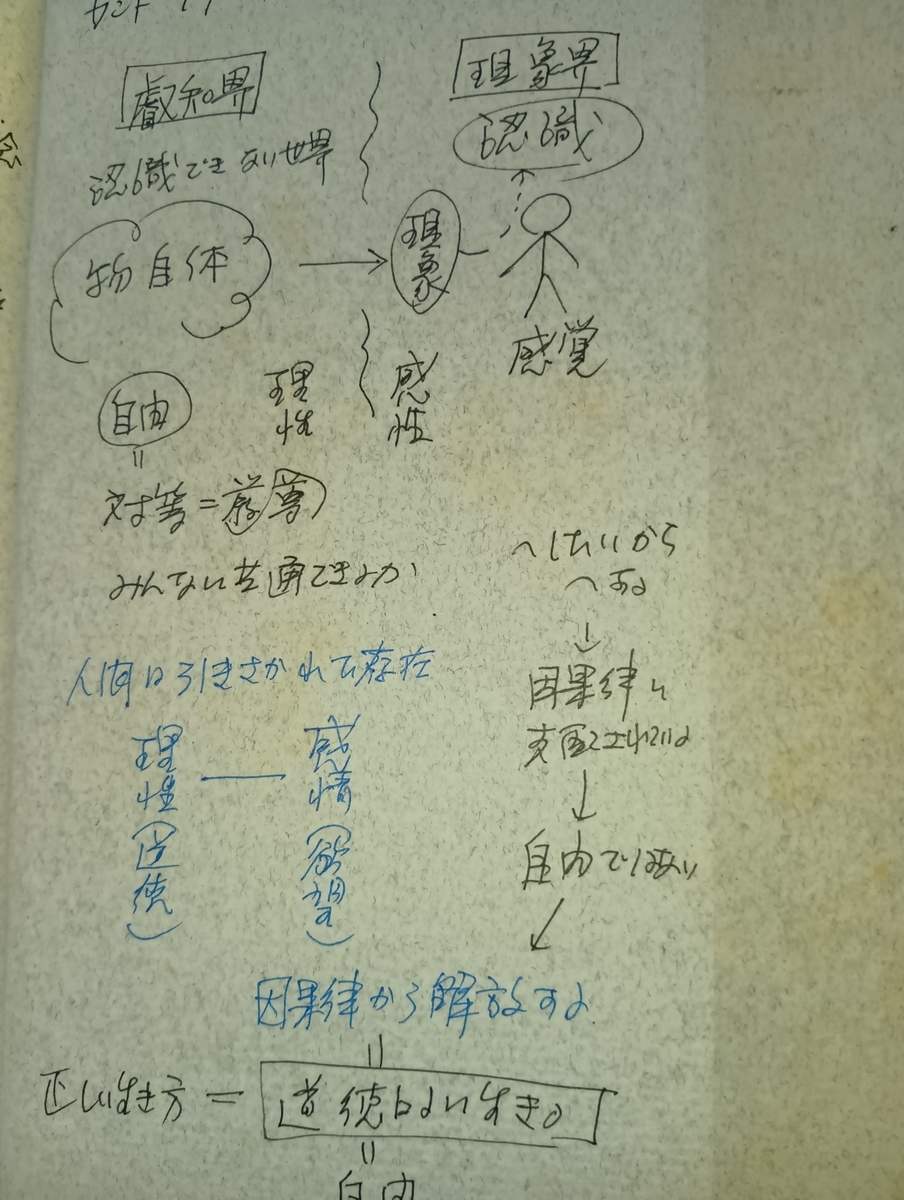 カント
叡知界
現象界
認識できない世界
認識
物自体
現象
感覚
理性
感性
自由
=
対等=尊
みんなに共通できるか
〜したいから
〜する
↓
因果律に
支配されている
↓
自由ではない
人間は引きさかれて存在
理性(道徳)
感情(欲望)
因果律から解放する
=
正しい生き方 = 道徳的に生きる
=
自由